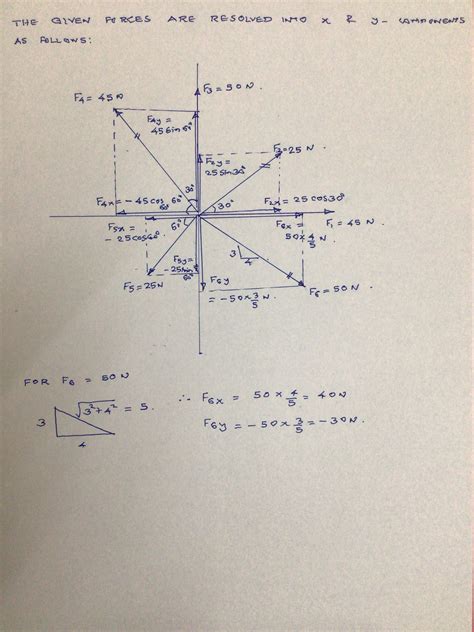 THE GIVEN FORCES ARE RESOLVED INTO x & y - COMPONENTS
AS FOLLOWS:
F3 = 50 N.
F4 = 45 N
F4y =
45 sin 60°
F2 = 25 N.
25 sin 30°
30°
F4x = -45 cos 60°
60°
30°
F2x = 25 cos 30°
F5x =
-25 cos 60°
60°
F6x =
50 × 4/5 N
F1 = 45 N
F5y =
-25 sin 60°
3
4
F5 = 25 N
F6y
= -50 × 3/5 N.
F6 = 50 N.
FOR F6 = 50 N
√3² + 4² = 5.
3
4
∴ F6x = 50 × 4/5 = 40 N
F6y = -50 × 3/5 = -30 N.